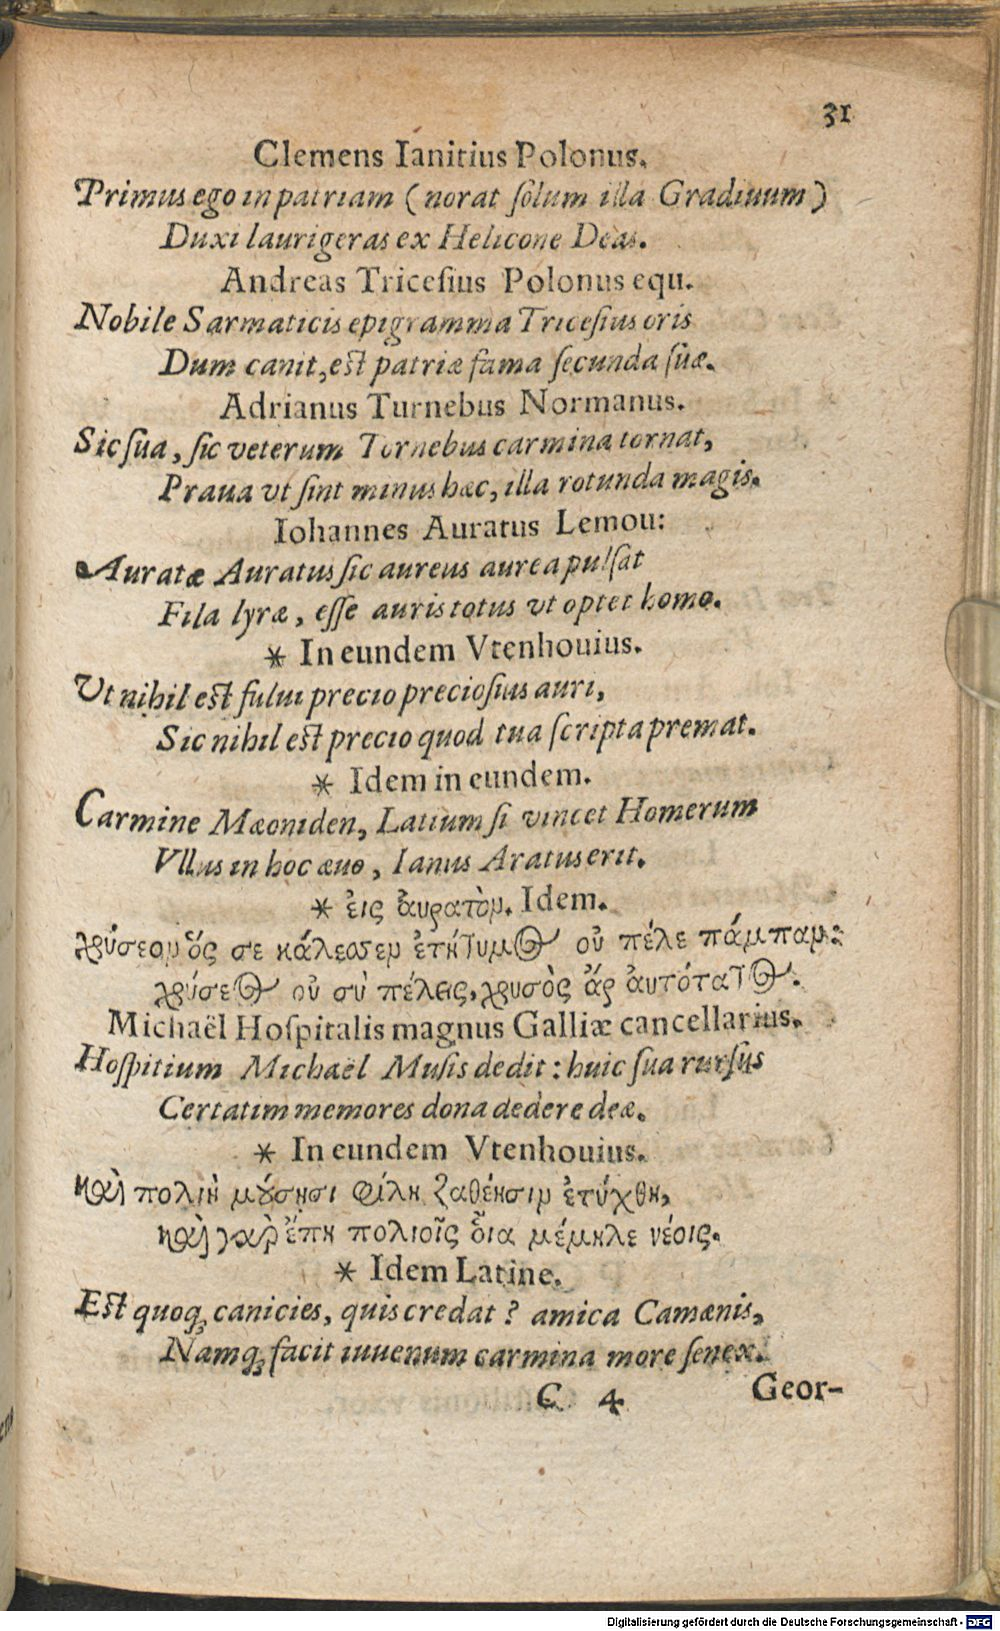 31
Clemens Ianitius Polonus.
Primus ego in patriam (norat ſolum illa Gradiuum)
Duxi laurigeras ex Helicone Deas.
Andreas Triceſius Polonus equ.
Nobile Sarmaticis epigramma Triceſius oris
Dum canit, eſt patriæ fama ſecunda ſuæ.
Adrianus Turnebus Normanus.
Sic ſua, ſic veterum Tornebus carmina tornat,
Praua vt ſint minus hæc, illa rotunda magis.
Iohannes Auratus Lemou:
Auratæ Auratus ſic aureus aurea pulſat
Fila lyræ, eſſe auris totus vt optet homo.
* In eundem Vtenhouius.
Vt nihil eſt fului precio precioſius auri,
Sic nihil eſt precio quod tua ſcripta premat.
* Idem in eundem.
Carmine Mæoniden, Latium ſi vincet Homerum
Vllus in hoc æuo, Ianus Aratus erit.
* ἐις ἀυρατὸν. Idem.
χρύσεον ὅς σε κάλεσσεν ἐτήτυμος οὐ πέλε πάμπαν:
χρύσεος οὐ σὺ πέλεις, χρυσὸς ἄρ ἀυτότατος.
Michaël Hoſpitalis magnus Galliæ cancellarius.
Hoſpitium Michaël Muſis dedit: huic ſua rurſus
Certatim memores dona dedere deæ.
* In eundem Vtenhouius.
καὶ πολιὴ μούσησι φίλη ζαθέησιν ἐτύχθη,
καὶ γαρ ἔπη πολιοῖς δῖα μέμηλε νέοις.
* Idem Latine.
Eſt quoq; canicies, quis credat? amica Camænis,
Namq; facit iuuenum carmina more ſenex.
C 4
Geor-
Digitalisierung gefördert durch die Deutsche Forschungsgemeinschaft - DFG